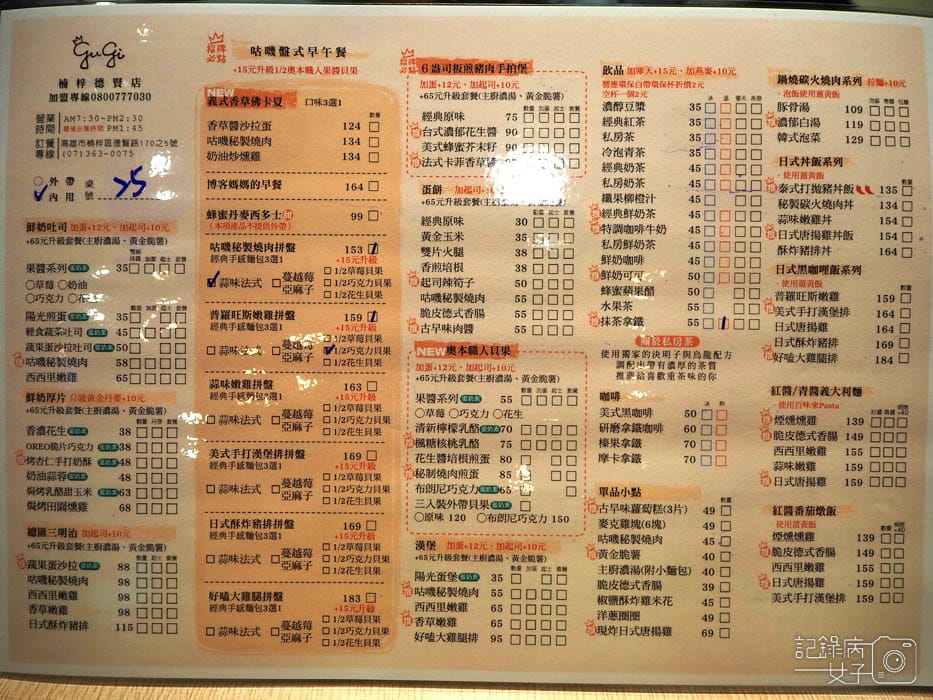 GuGi
楠梓德賢店
加盟專線0800777030
營業時間 AM7:30-PM2:30
最後出餐時間 PM1:45
訂餐專線 高雄市楠梓區德賢路170之5號
(07)363-0075
外帶 內用 桌號 25
鮮奶吐司 加蛋+12元、加起司+10元
+65元升級套餐(主廚濃湯、黃金脆薯)
果醬系列 蛋奶素 35
○草莓 ○奶油
○巧克力 ○花生
陽光煎蛋 蛋奶素 35
輕食蔬菜吐司 蛋奶素 45
蔬果蛋沙拉吐司 蛋奶素 50
咕嘰秘製燒肉 58
西西里燻雞 65
鮮奶厚片 升級黃金丹麥+10元
+65元升級套餐(主廚濃湯、黃金脆薯)
香濃花生 蛋奶素 38
OREO脆片巧克力 蛋奶素 38
烤杏仁手打奶酥 蛋奶素 48
奶油蒜蓉 蛋奶素 48
焗烤乳酪甜玉米 蛋奶素 63
焗烤田園燻雞 68
總匯三明治 加起司+10元
+65元升級套餐(主廚濃湯、黃金脆薯)
蔬果蛋沙拉 蛋奶素 88
咕嘰秘製燒肉 98
西西里燻雞 98
香草嫩雞 98
日式酥炸豬排 115
招牌必點
咕嘰盤式早午餐
+15元升級1/2奧本職人果醬貝果
NEW
義式香草佛卡夏 口味3選1
香草醬沙拉蛋 124
咕嘰秘製燒肉 134
奶油炒燻雞 134
博客媽媽的早餐 164
蜂蜜丹麥西多士 甜 99
(本項產品不提供外帶)
咕嘰秘製燒肉拼盤 153
經典手感麵包3選1 +15元升級
蒜味法式 蔓越莓亞麻子 1/2草莓貝果
1/2巧克力貝果
1/2花生貝果
普羅旺斯嫩雞拼盤 159
經典手感麵包3選1 +15元升級
蒜味法式 蔓越莓亞麻子 1/2草莓貝果
1/2巧克力貝果
1/2花生貝果
蒜味嫩雞拼盤 163
經典手感麵包3選1 +15元升級
蒜味法式 蔓越莓亞麻子 1/2草莓貝果
1/2巧克力貝果
1/2花生貝果
美式手打漢堡排拼盤 169
經典手感麵包3選1 +15元升級
蒜味法式 蔓越莓亞麻子 1/2草莓貝果
1/2巧克力貝果
1/2花生貝果
日式酥炸豬排拼盤 169
經典手感麵包3選1 +15元升級
蒜味法式 蔓越莓亞麻子 1/2草莓貝果
1/2巧克力貝果
1/2花生貝果
好嗑大雞腿拼盤 183
經典手感麵包3選1 +15元升級
蒜味法式 蔓越莓亞麻子 1/2草莓貝果
1/2巧克力貝果
1/2花生貝果
招牌必點
6盎司板煎豬肉手拍堡
加蛋+12元、加起司+10元
+65元升級套餐(主廚濃湯、黃金脆薯)
經典原味 75
台式濃郁花生醬 90
美式蜂蜜芥末籽 90
法式卡菲香草醬
蛋餅 加起司+10元
+65元升級套餐(主廚濃湯、黃金脆薯)
經典原味 30
黃金玉米 35
雙片火腿 38
香煎培根 38
起司辣筍子 50
咕嘰秘製燒肉 55
脆皮德式香腸 55
古早味肉醬 55
NEW 奧本職人貝果
加蛋+12元、加起司+10元
+65元升級套餐(主廚濃湯、黃金脆薯)
果醬系列 蛋奶素 55
○草莓 ○巧克力 ○花生
清新檸檬乳酪 蛋奶素 70
楓糖核桃乳酪 75
花生醬培根煎蛋 80
秘制燒肉煎蛋 85
布朗尼巧克力 蛋奶素 65
三入裝外帶貝果 蛋奶素
○原味 120 ○布朗尼巧克力 150
漢堡 加蛋+12元、加起司+10元
+65元升級套餐(主廚濃湯、黃金脆薯)
陽光蛋堡 蛋奶素 35
咕嘰秘製燒肉 55
西西里燻雞 65
香草嫩雞 65
好嗑大雞腿排 95
飲品 加寒天+15元、加燕麥+10元
響應環保自帶環保杯折價2元
空杯一個2元
濃醇豆漿 35
經典紅茶 30
私房茶 30
冷泡青茶 30
經典奶茶 35
私房奶茶 35
纖果柳橙汁 35
經典鮮奶茶 45
特調咖啡牛奶 45
私房鮮奶茶 45
鮮奶咖啡 45
鮮奶可可
蜂蜜蘋果醋 50
水果茶 55
抹茶拿鐵 55
關於私房茶
使用獨家的決明子與烏龍配方
調配出帶有濃厚的茶質
推薦給喜歡重茶味的你
咖啡
美式黑咖啡 50
研磨拿鐵咖啡 60
榛果拿鐵 70
摩卡拿鐵 70
單品小點
古早味蘿蔔糕(3片) 49
麥克雞塊(6塊) 49
咕嘰秘製燒肉 45
黃金脆薯 40
主廚濃湯(附小麵包) 40
脆皮德式香腸 39
椒鹽酥炸雞米花 45
洋蔥圈圈 49
現炸日式唐揚雞 69
鍋燒碳火燒肉系列 拉麵+10元
・泡飯使用薑黃飯
豚骨湯 109
濃郁白湯 119
韓式泡菜 129
日式丼飯系列
・使用薑黃飯
泰式打拋豬丼飯 135
秘製碳火燒肉丼 134
蒜味嫩雞丼 154
日式唐揚雞丼飯 154
酥炸豬排丼 164
日式黑咖哩飯系列
・使用薑黃飯
普羅旺斯嫩雞 159
美式手打漢堡排 164
日式唐揚雞 164
日式酥炸豬排 169
好嗑大雞腿排 184
紅醬/青醬義大利麵
・使用百味來Pasta
煙燻燻雞 139
脆皮德式香腸 149
西西里燉雞 155
蒜味嫩雞 159
日式唐揚雞 159
紅醬番茄燉飯
・使用薑黃飯
煙燻燻雞 139
脆皮德式香腸 149
西西里燉雞 155
日式唐揚雞 159
美式手打漢堡排 159
記錄病女子